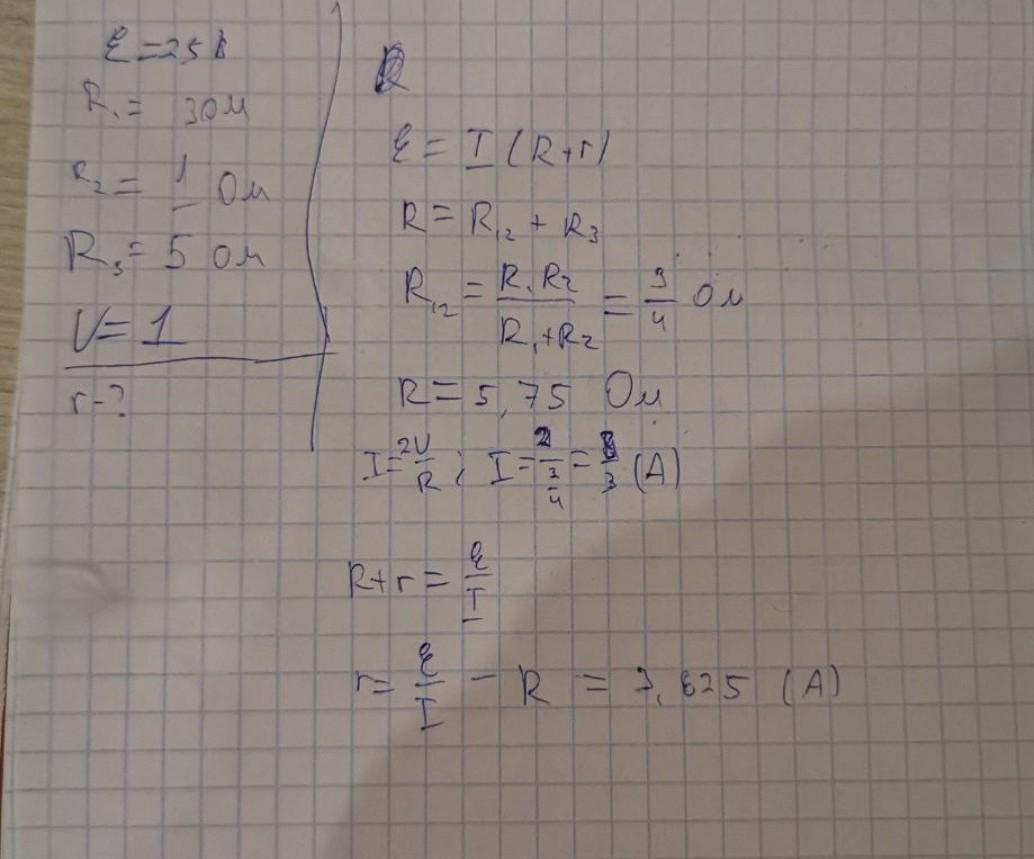 ℰ = 25 В
R₁ = 3 Ом
R₂ = 1 Ом
R₃ = 5 Ом
U = 1
r - ?
ℰ = I (R+r)
R = R₁₂ + R₃
R₁₂ = R₁R₂ / R₁+R₂ = 3/4 Ом
R = 5,75 Ом
I = 2U/R ; I = 2/(3/4) = 8/3 (А)
R+r = ℰ/I
r = ℰ/I - R = 3,625 (А)